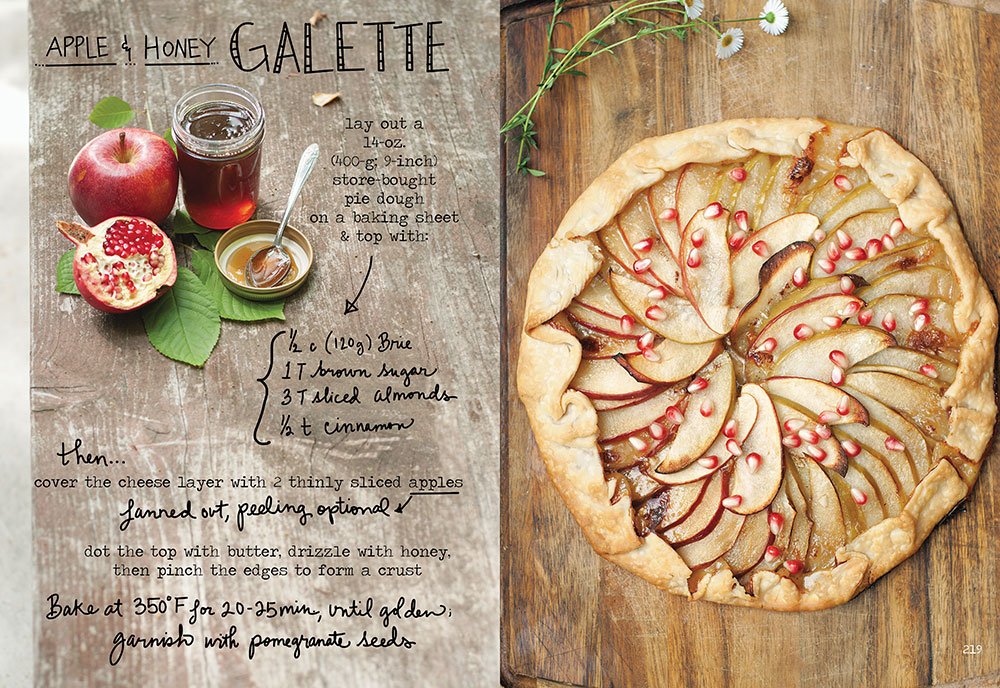 APPLE & HONEY GALETTE
lay out a
14-oz.
(400-g; 9-inch)
store-bought
pie dough
on a baking sheet
& top with:
½ c (120g) Brie
1 T brown sugar
3 T sliced almonds
½ t cinnamon
then...
cover the cheese layer with 2 thinly sliced apples
fanned out, peeling optional
dot the top with butter, drizzle with honey,
then pinch the edges to form a crust
Bake at 350°F for 20-25 min, until golden;
garnish with pomegranate seeds
219